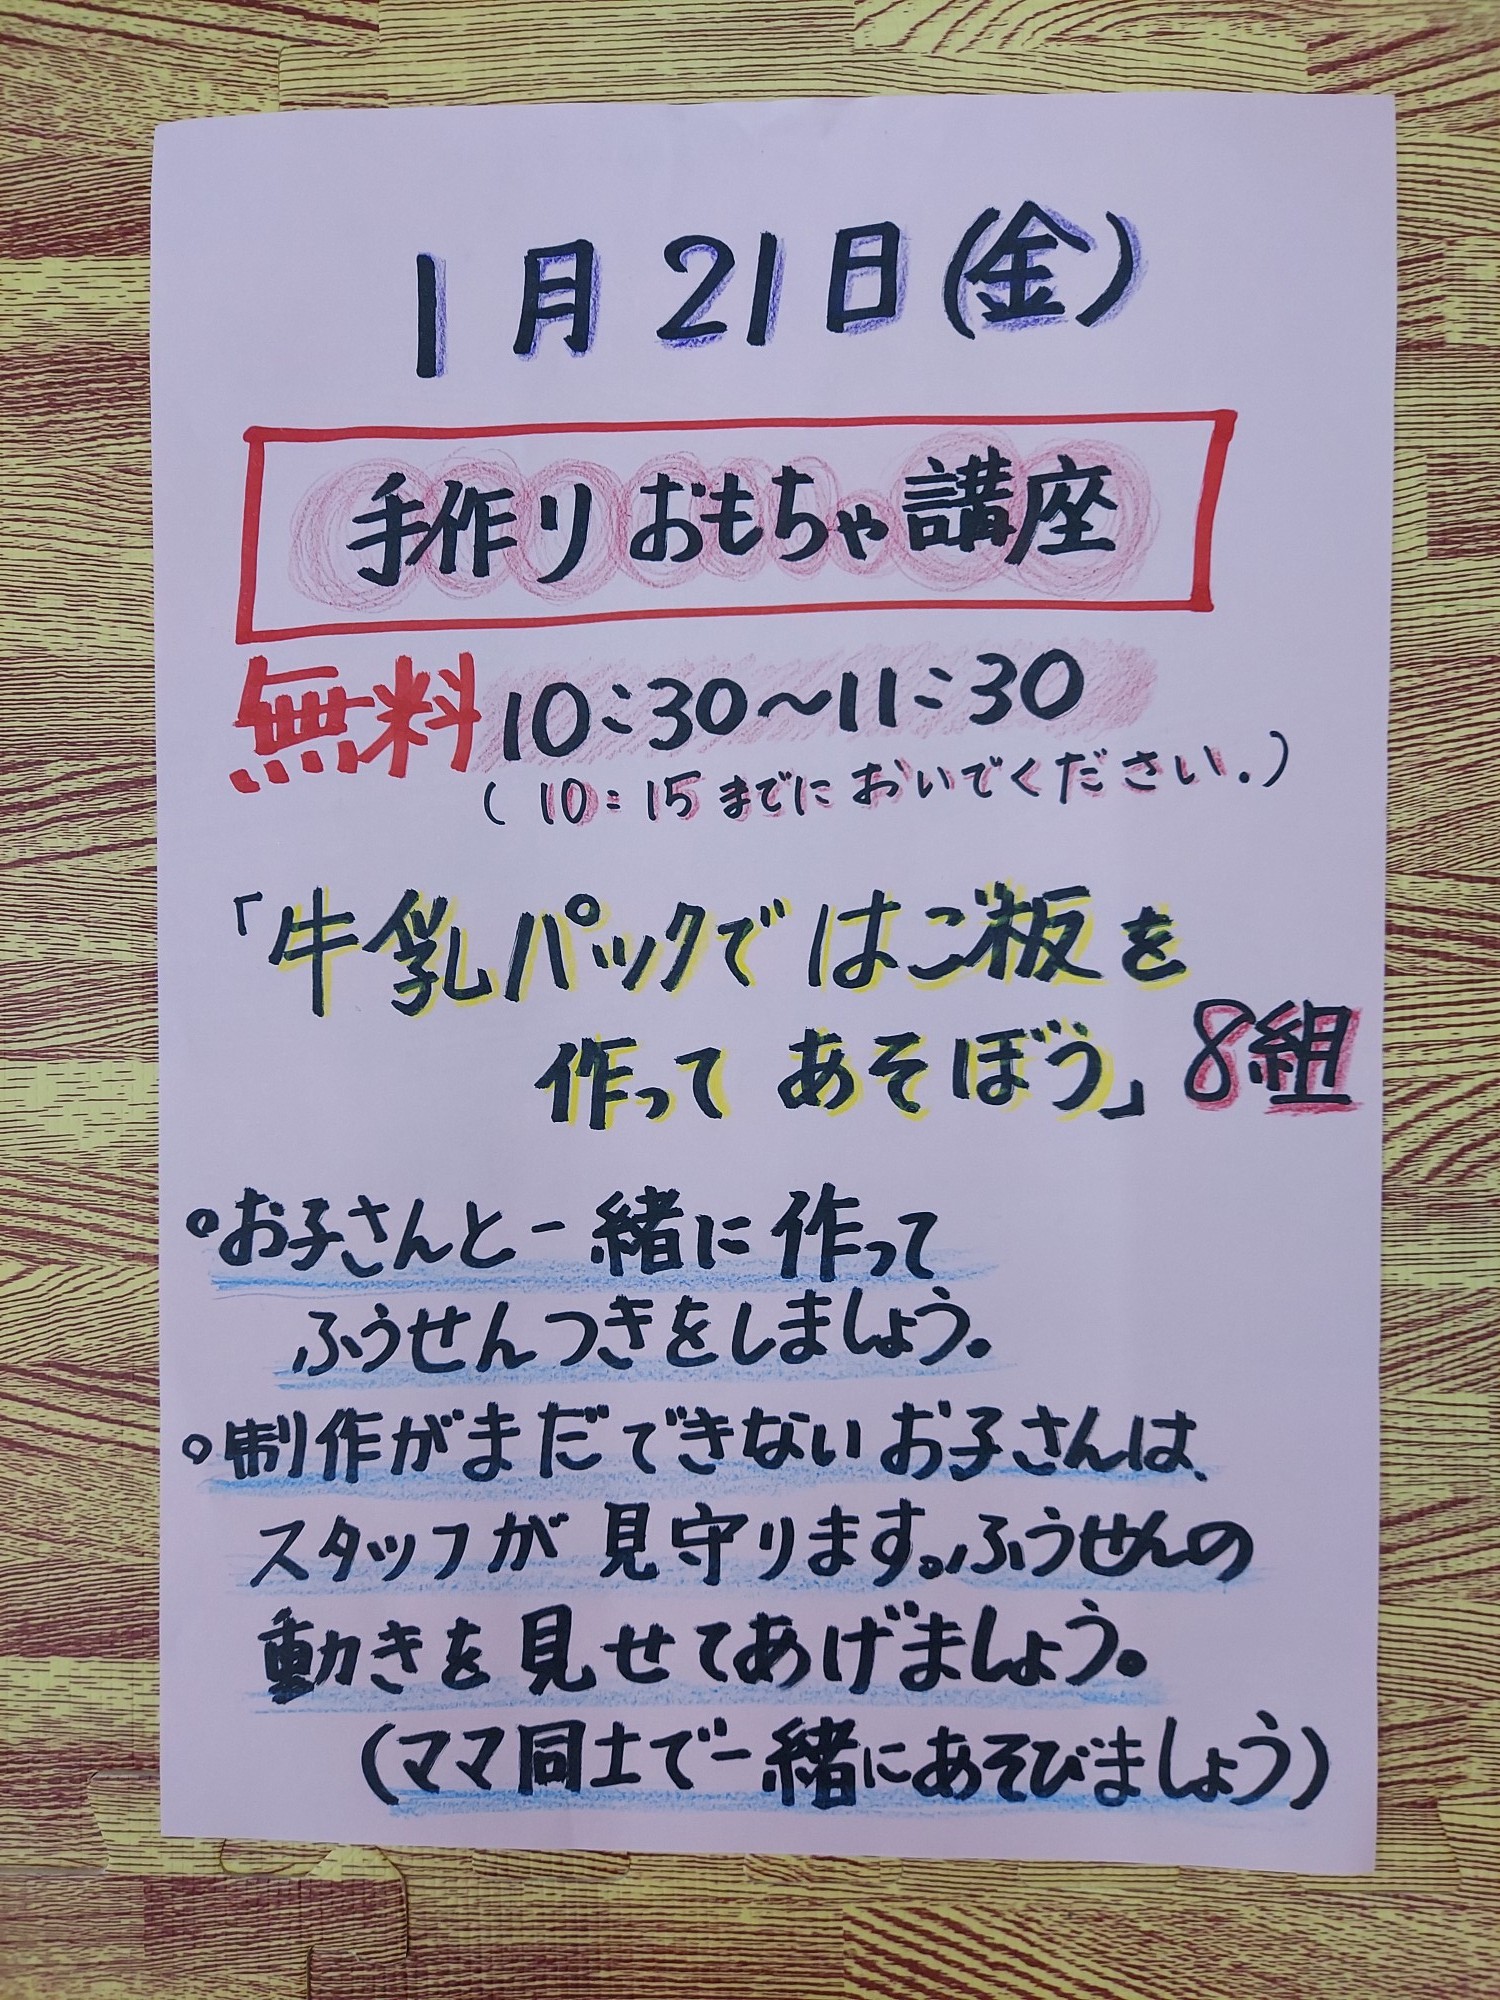 1月21日(金)
手作りおもちゃ講座
無料 10:30〜11:30
(10:15までにおいでください.)
「牛乳パックではご板を
作ってあそぼう」8組
○お子さんと一緒に作って
ふうせんつきをしましょう。
○制作がまだできないお子さんは、
スタッフが見守ります。ふうせんの
動きを見せてあげましょう。
(ママ同士で一緒にあそびましょう)